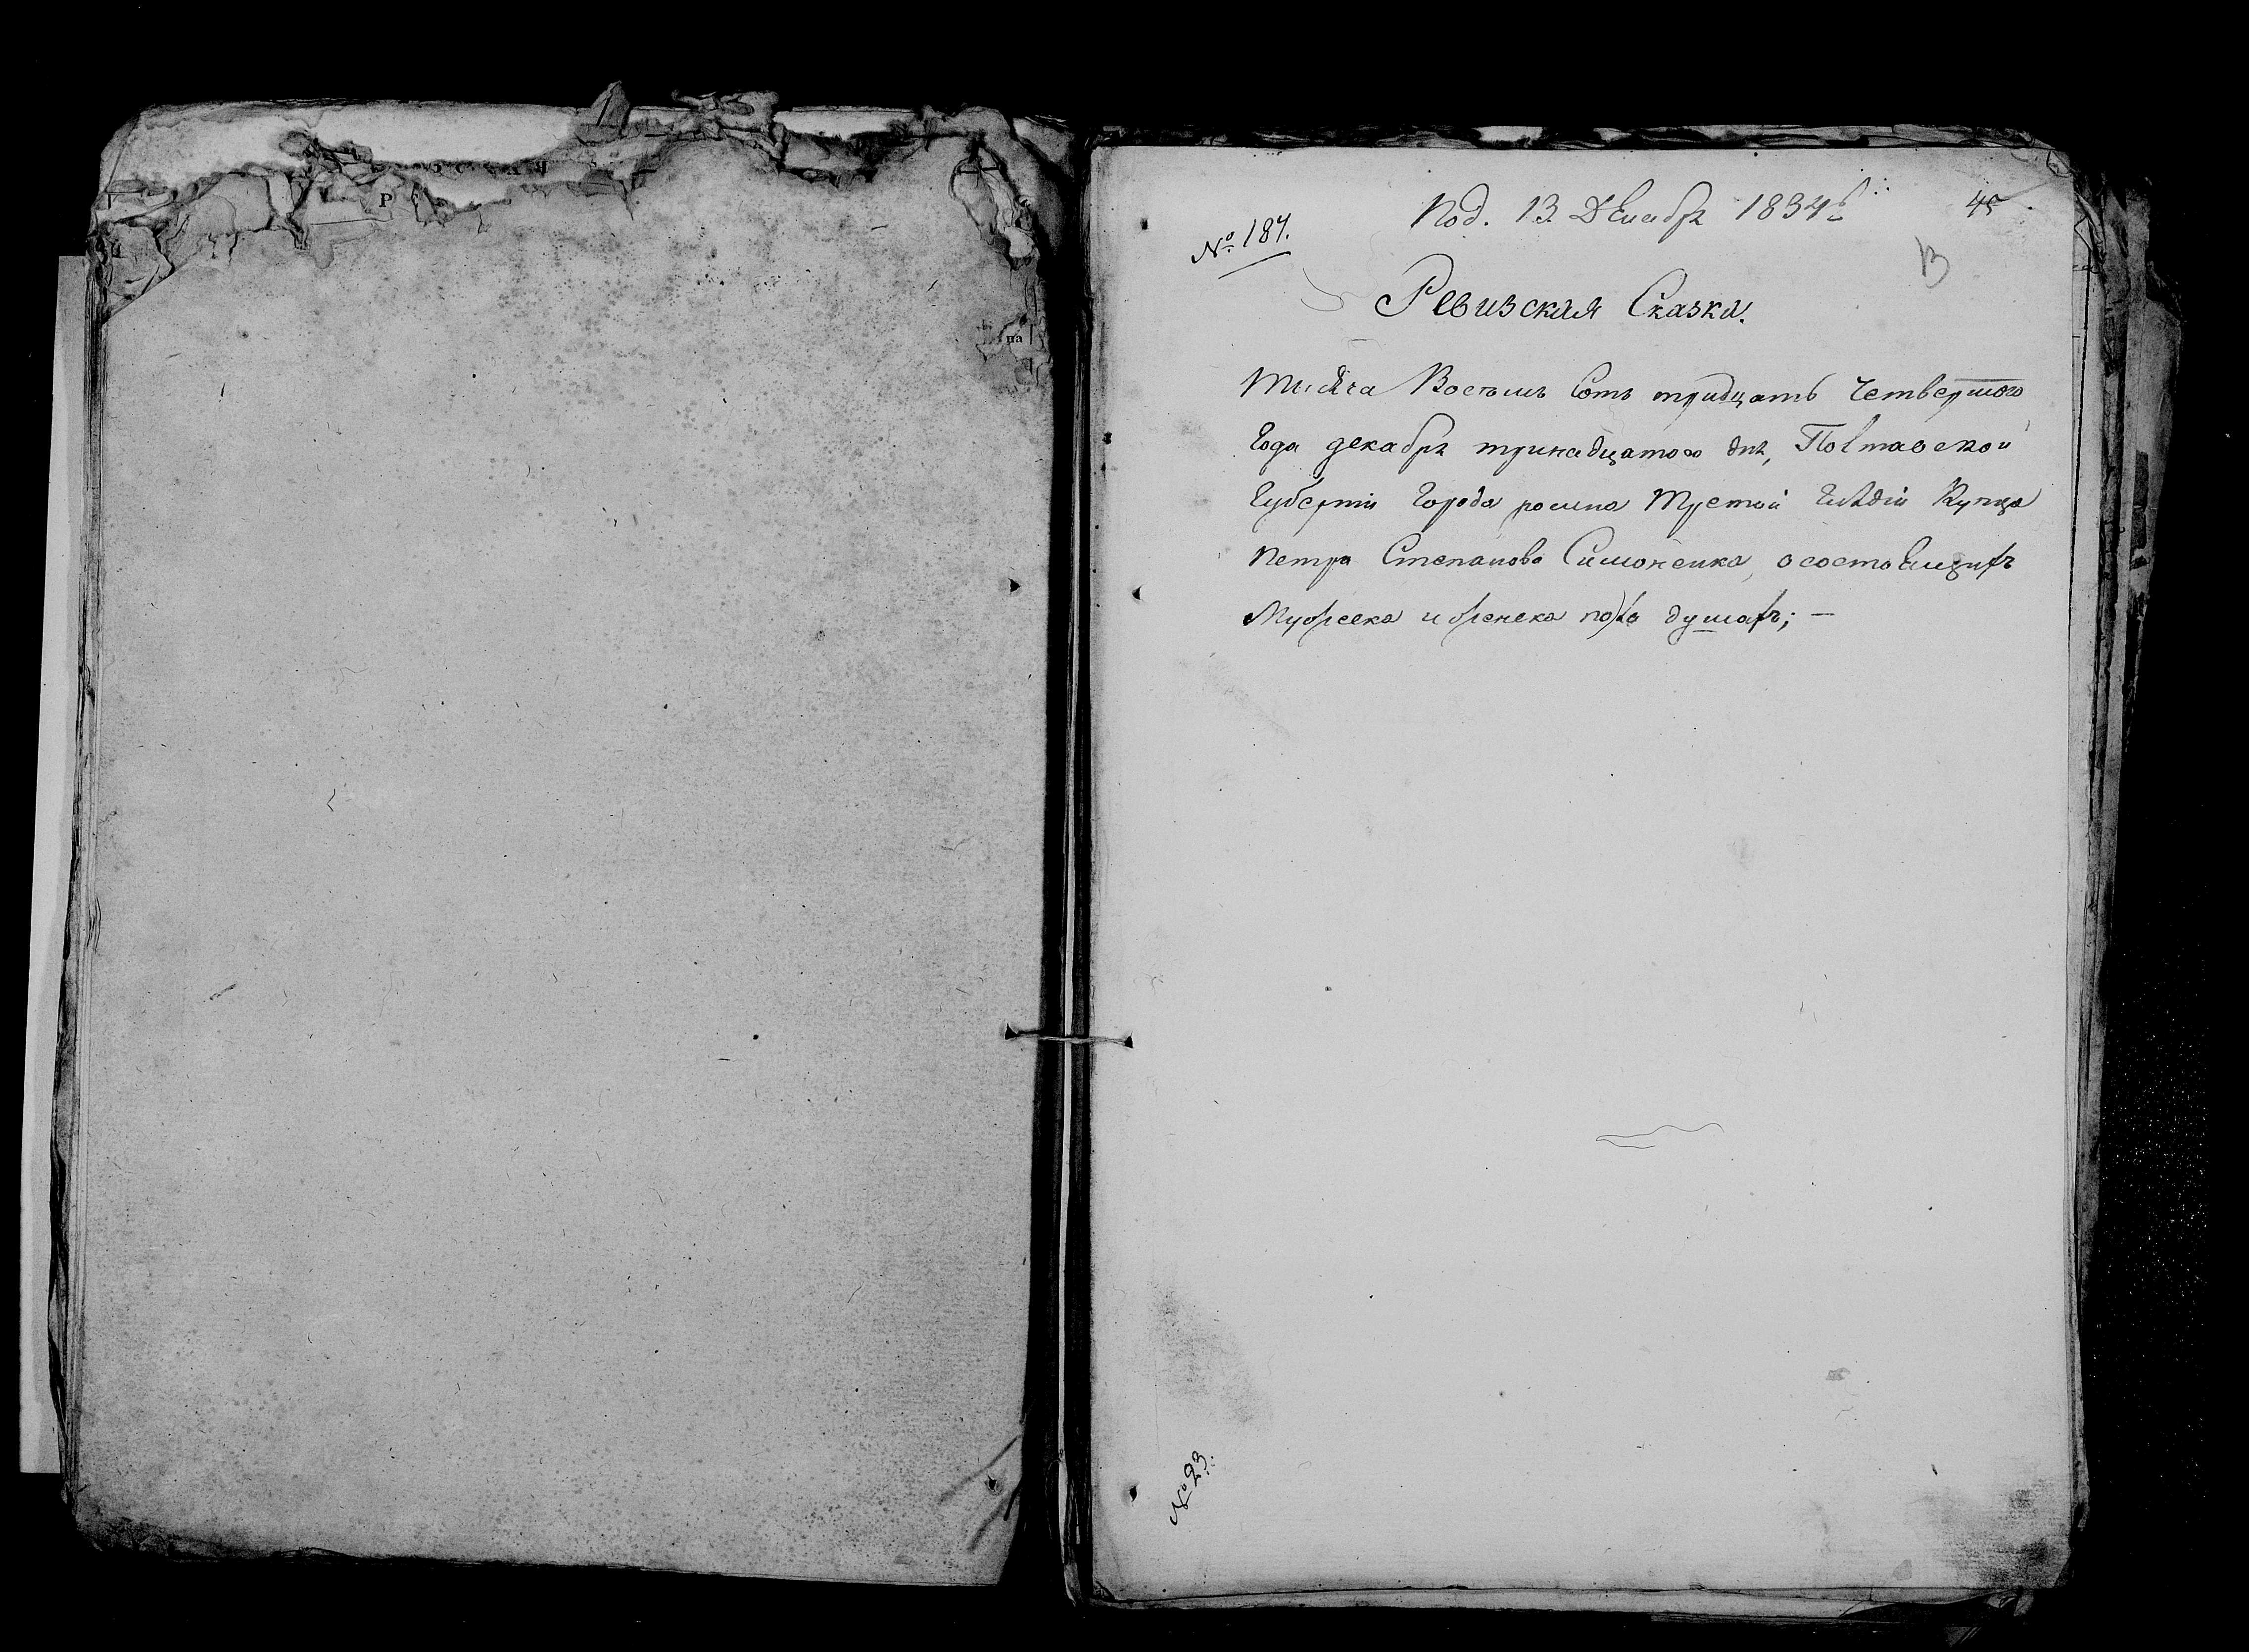 № 187.
Под. 13 Декабря 1834
45
13
Ревизская Сказка.
Тисяча Восемь Сотъ тридцать Четвертого
Года декабря тринадцатого дня, Полтавской
Губерніи Города ромна Третой Гилдіи Купца
Петра Степанова Симоненка, о состоящихъ
Мужеска и женска пола душахъ; —
№ 23.
Р
па